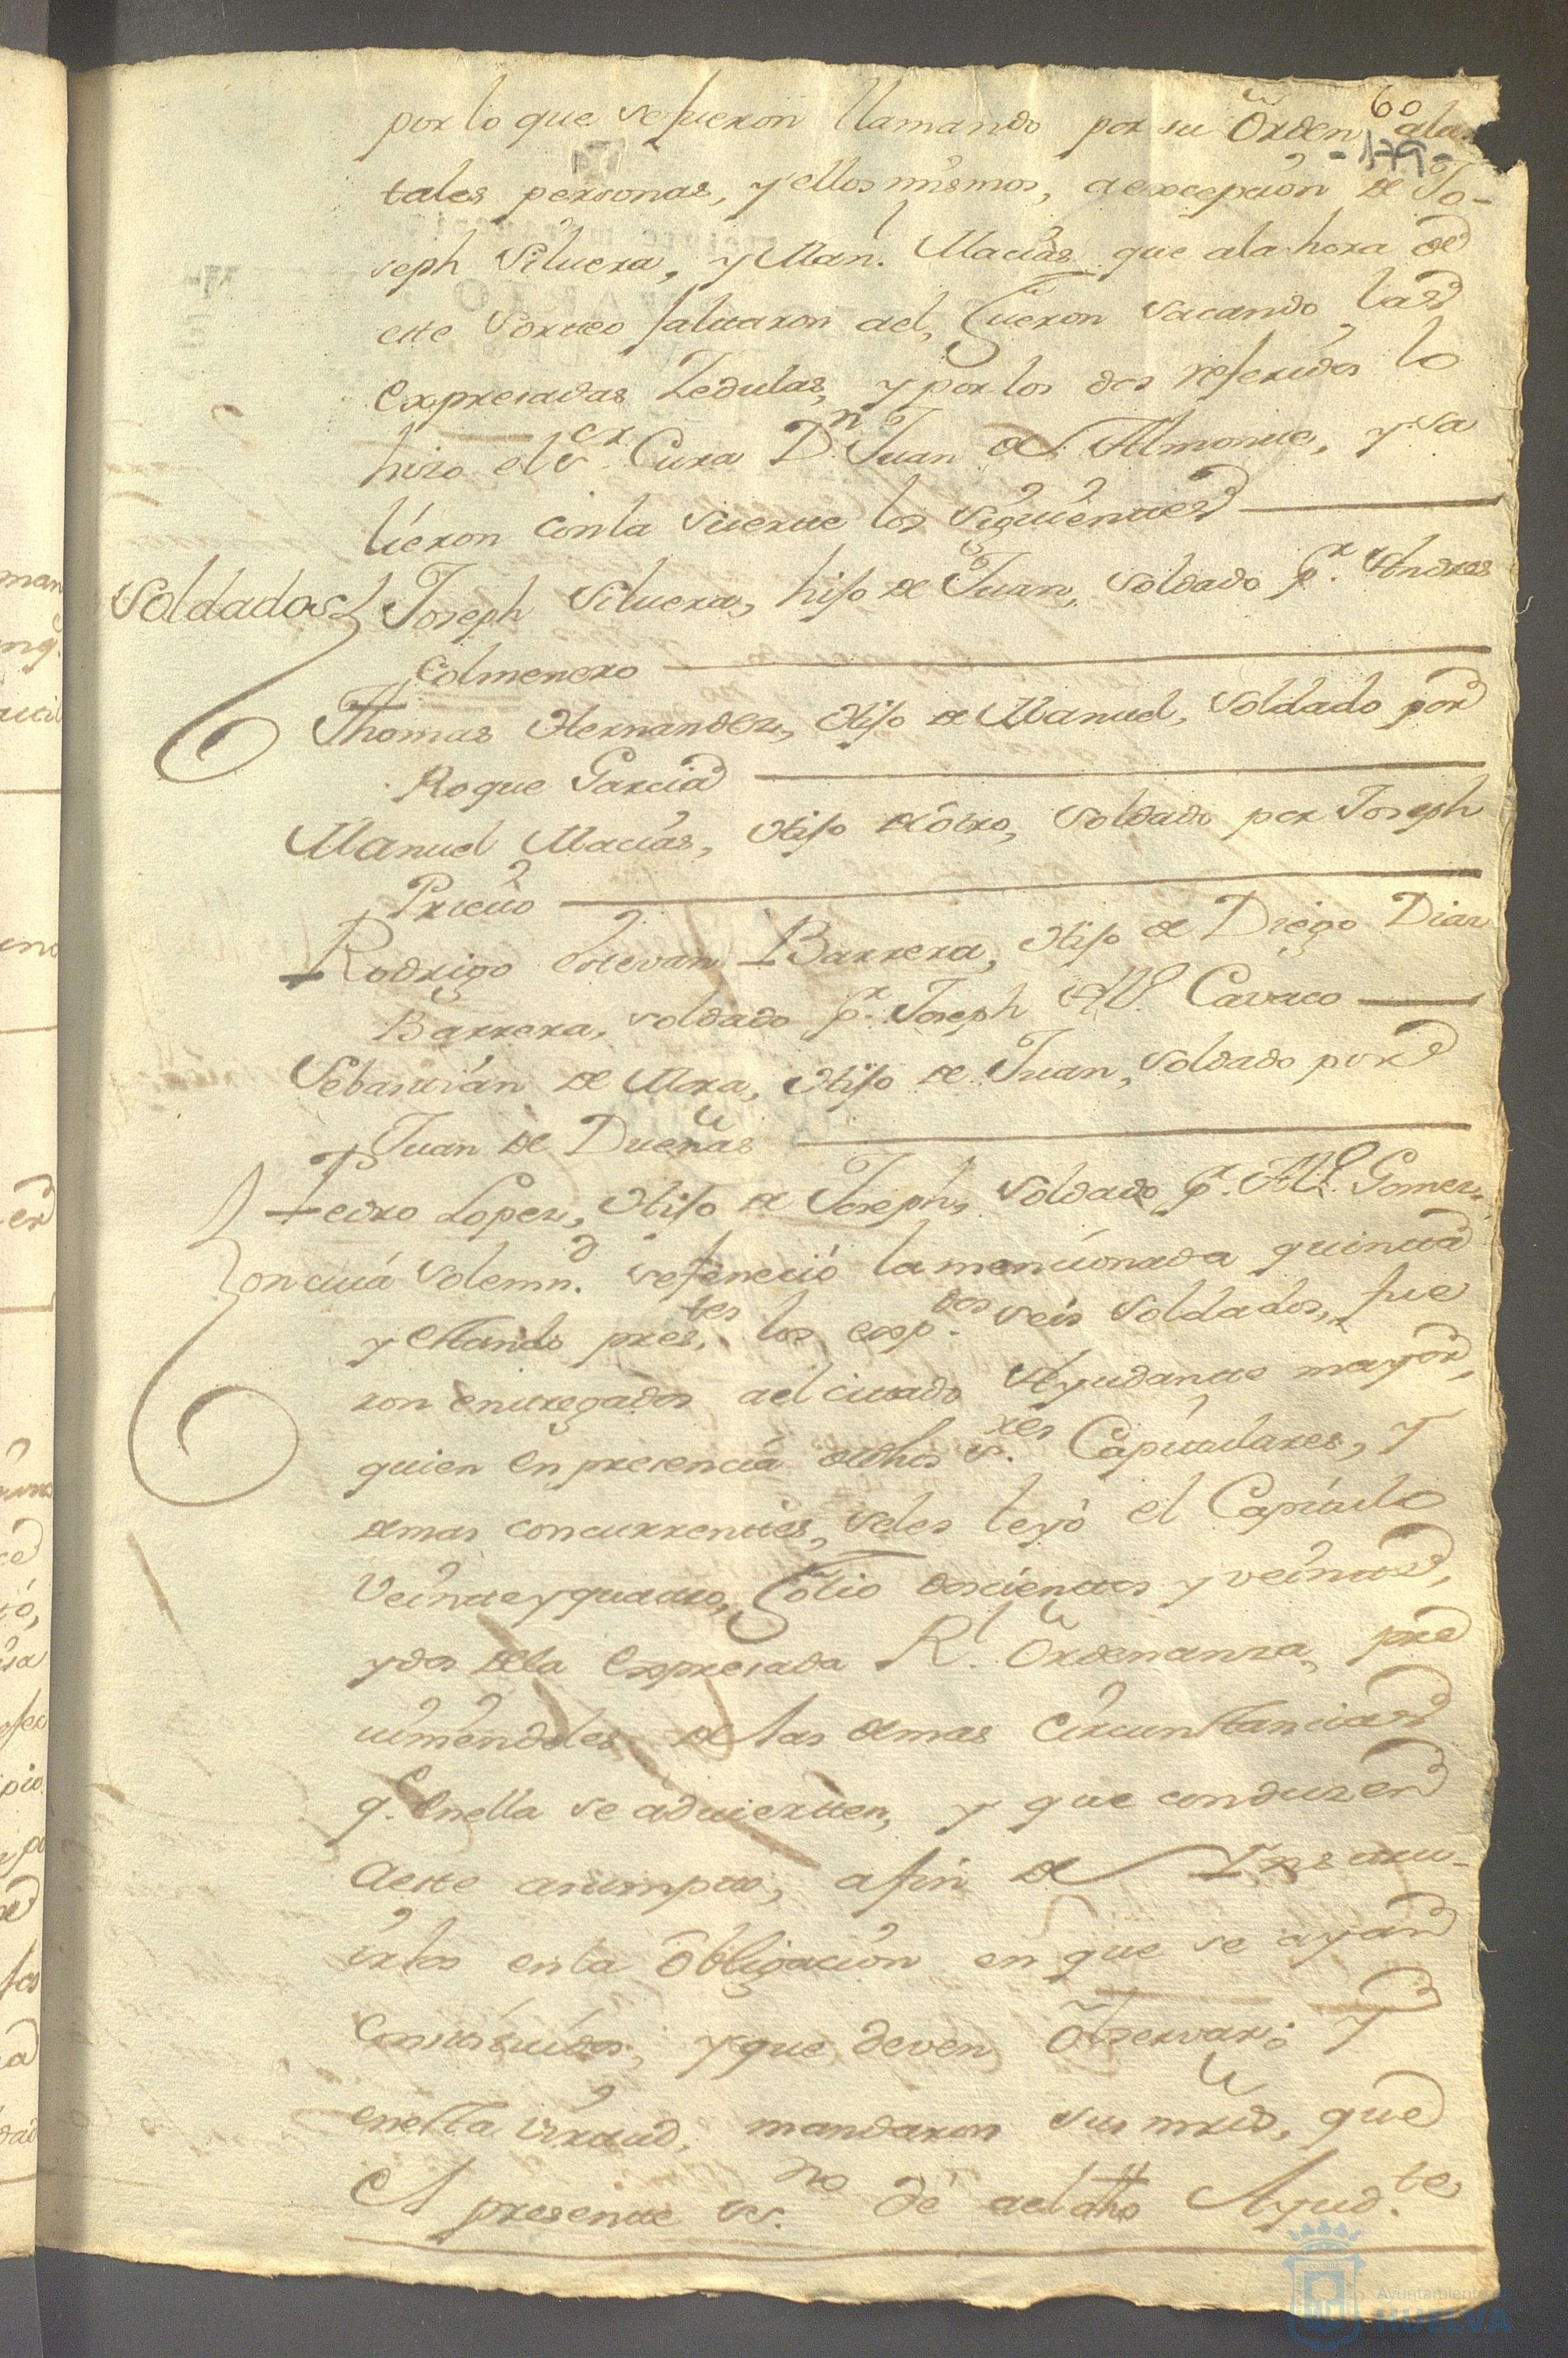 60
-179-
por lo que se fueron llamando por su Orden a las
tales personas, y ellos mismos, a excepcion de Jo-
seph Siluera, y Man.l Macias que ala hora de
este Sorteo faltaron ael, Fueron sacando las
expresadas Zedulas, y por los dos referidos lo
hizo el S.or Cura D.n Juan de Almonte, y sa
lieron con la suerte los siguientes
Soldados
Joseph Siluera, hijo de Juan, soldado p.r Andres
Colmenero
Thomas Hernandez, Hijo de Manuel, Soldado por
Roque Garcia
Manuel Macias, Hijo de ôtro, Soldado por Joseph
Prieto
Rodrigo Estevan Barrera, Hijo de Diego Diaz
Barrera, soldado p.r Joseph Al.e Cavaco
Sebastian de Mora, Hijo de Juan, Soldado por
Juan de Dueñas
Pedro Lopez, Hijo de Joseph, Soldado p.r Al.e Gomez.
Con cuia Solemn.d se feneció la mencionada quinta
y estando pres.tes los exsp.dos seis Soldados, fue
ron entregados ael citado Ayudante mayor,
quien en presencia de dhos S.res Capitulares, y
demas concurrentes, seles leyó el Capitulo
Veinte y quatro, Folio doscientos y veinte,
y dos dela Expresada R.l Ordenanza, pre
viniendoles de las demas circunstancias
q.e en ella se advierten, y que conduzen
a este asumpto, a fin de Instru-
irlos en la Obligacion en que se ayan
Constituidos, y que deven Observar; Y
en esta virtud, mandaron sus mrds, que
el presente es.no dé ael dho Ayud.te
Ayuntamiento de
HUELVA